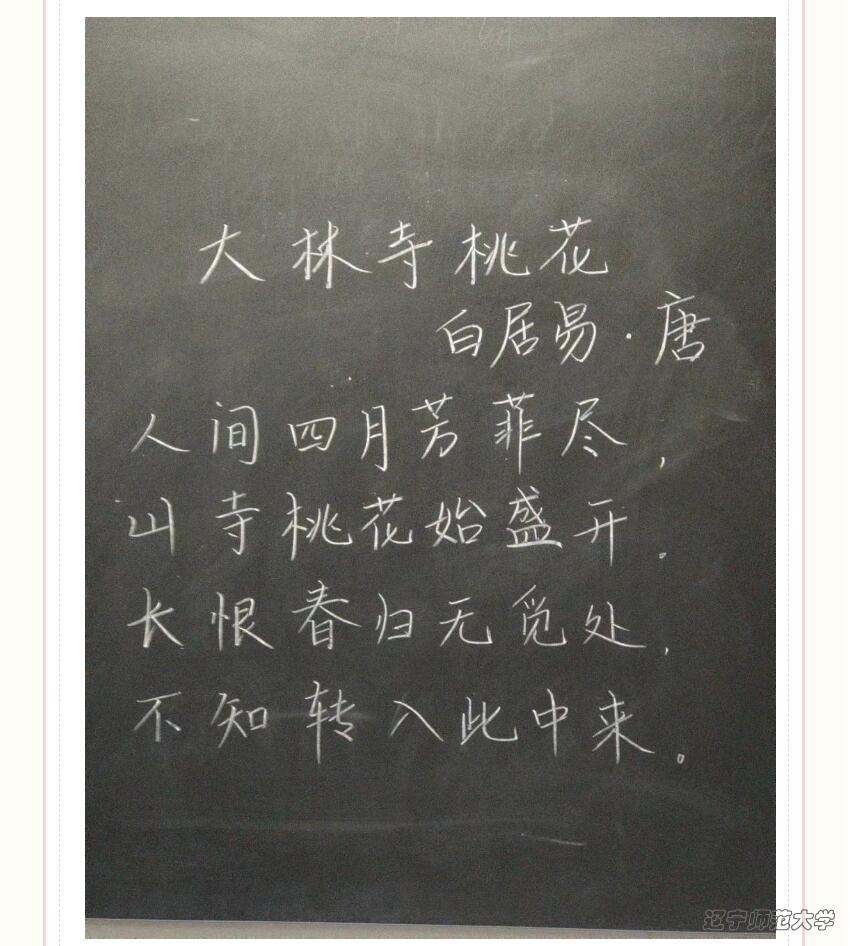 大林寺桃花
白居易·唐
人间四月芳菲尽，
山寺桃花始盛开。
长恨春归无觅处，
不知转入此中来。
辽宁师范大学